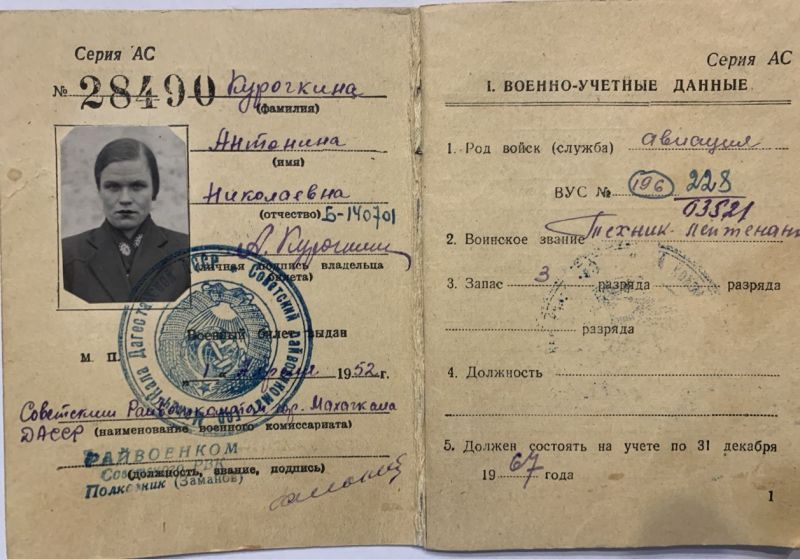 Серия АС
№ 28490 Курочкина
(фамилия)
Антонина
(имя)
Николаевна
(отчество) Б-140701
А. Курочкин
(личная подпись владельца билета)
Военный билет выдан
М. П. „1" 1952 г.
Советским Райвоенкоматом гор. Махачкала
ДАССР (наименование военного комиссариата)
РАЙВОЕНКОМ
Советского РВК
(должность, звание, подпись)
Полковник (Заманов)
Серия АС
I. ВОЕННО-УЧЕТНЫЕ ДАННЫЕ
1. Род войск (служба) авиация
ВУС № 196 228
03521
2. Воинское звание Техник-лейтенант
3. Запас 3 разряда разряда
разряда
4. Должность
5. Должен состоять на учете по 31 декабря
1967 года
1